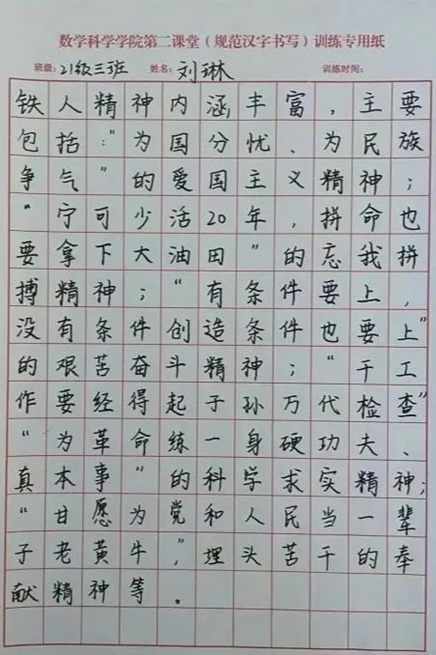 数学科学学院第二课堂（规范汉字书写）训练专用纸
班级：21级三班 姓名：刘琳 训练时间：
铁人精神内涵丰富，主要
包括：“为国分忧、为民族
争气”的爱国主义精神；
“宁可少活20年，拼命也
要拿下大油田”的忘我拼
搏精神；“有条件要上，
没有条件创造条件也要上”
的艰苦奋斗精神；“干工
作要经得起子孙万代检查”
“为革命练一身硬功夫、
真本事”的科学求实精神；
“甘愿为党和人民当一辈
子老黄牛”，埋头苦干的奉
献精神等。